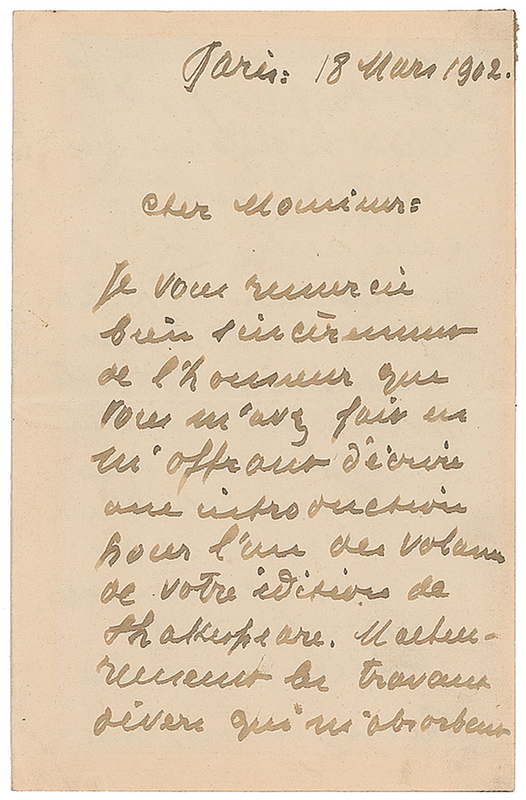 Paris: 18 Mars 1902.
Cher Monsieur:
Je vous remercie
bien sincèrement
de l'honneur que
vous m'avez fait en
m'offrant d'écrire
une introduction
pour l'un des volumes
de votre édition de
Shakespeare. Malheu-
reusement les travaux
divers qui m'absorbent